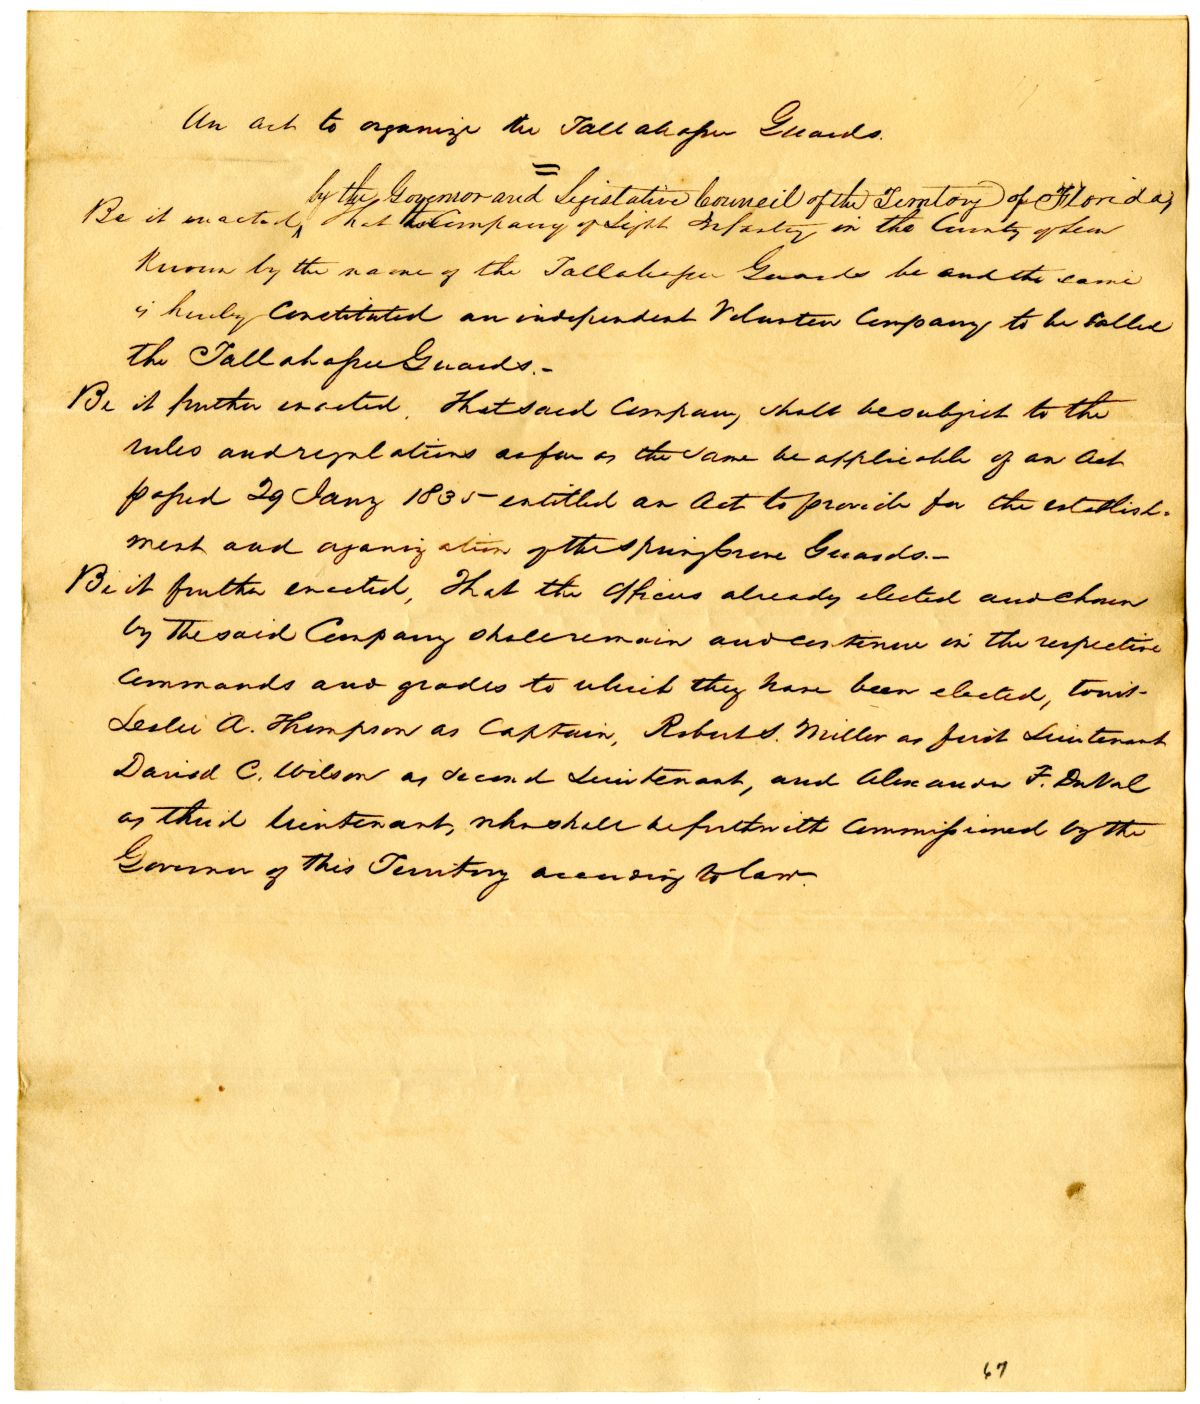 An act to organize the Tallahassee Guards.
by the Governor and Legislative Council of the Territory of Florida,
Be it enacted, That the Company of Light Infantry in the County of Leon
Known by the name of the Tallahassee Guards be and the same
is hereby Constituted an independent Volunteer Company, to be Called
the Tallahassee Guards.-
Be it further enacted, That said Company shall be subject to the
rules and regulations as far as the same be applicable of an Act
passed 29 Jany 1835 entitled an Act to provide for the establish-
ment and organization of the Spring Grove Guards.-
Be it further enacted, That the Officers already elected and chosen
by the said Company shall remain and continue in the respective
Commands and grades to which they have been elected, towit-
Leslie A. Thompson as Captain, Robert S. Miller as first Lieutenant
David C. Wilson as Second Lieutenant, and Alexander F. DuVal
as third lieutenant, who shall be forthwith Commissioned by the
Governor of this Territory according to law.
67